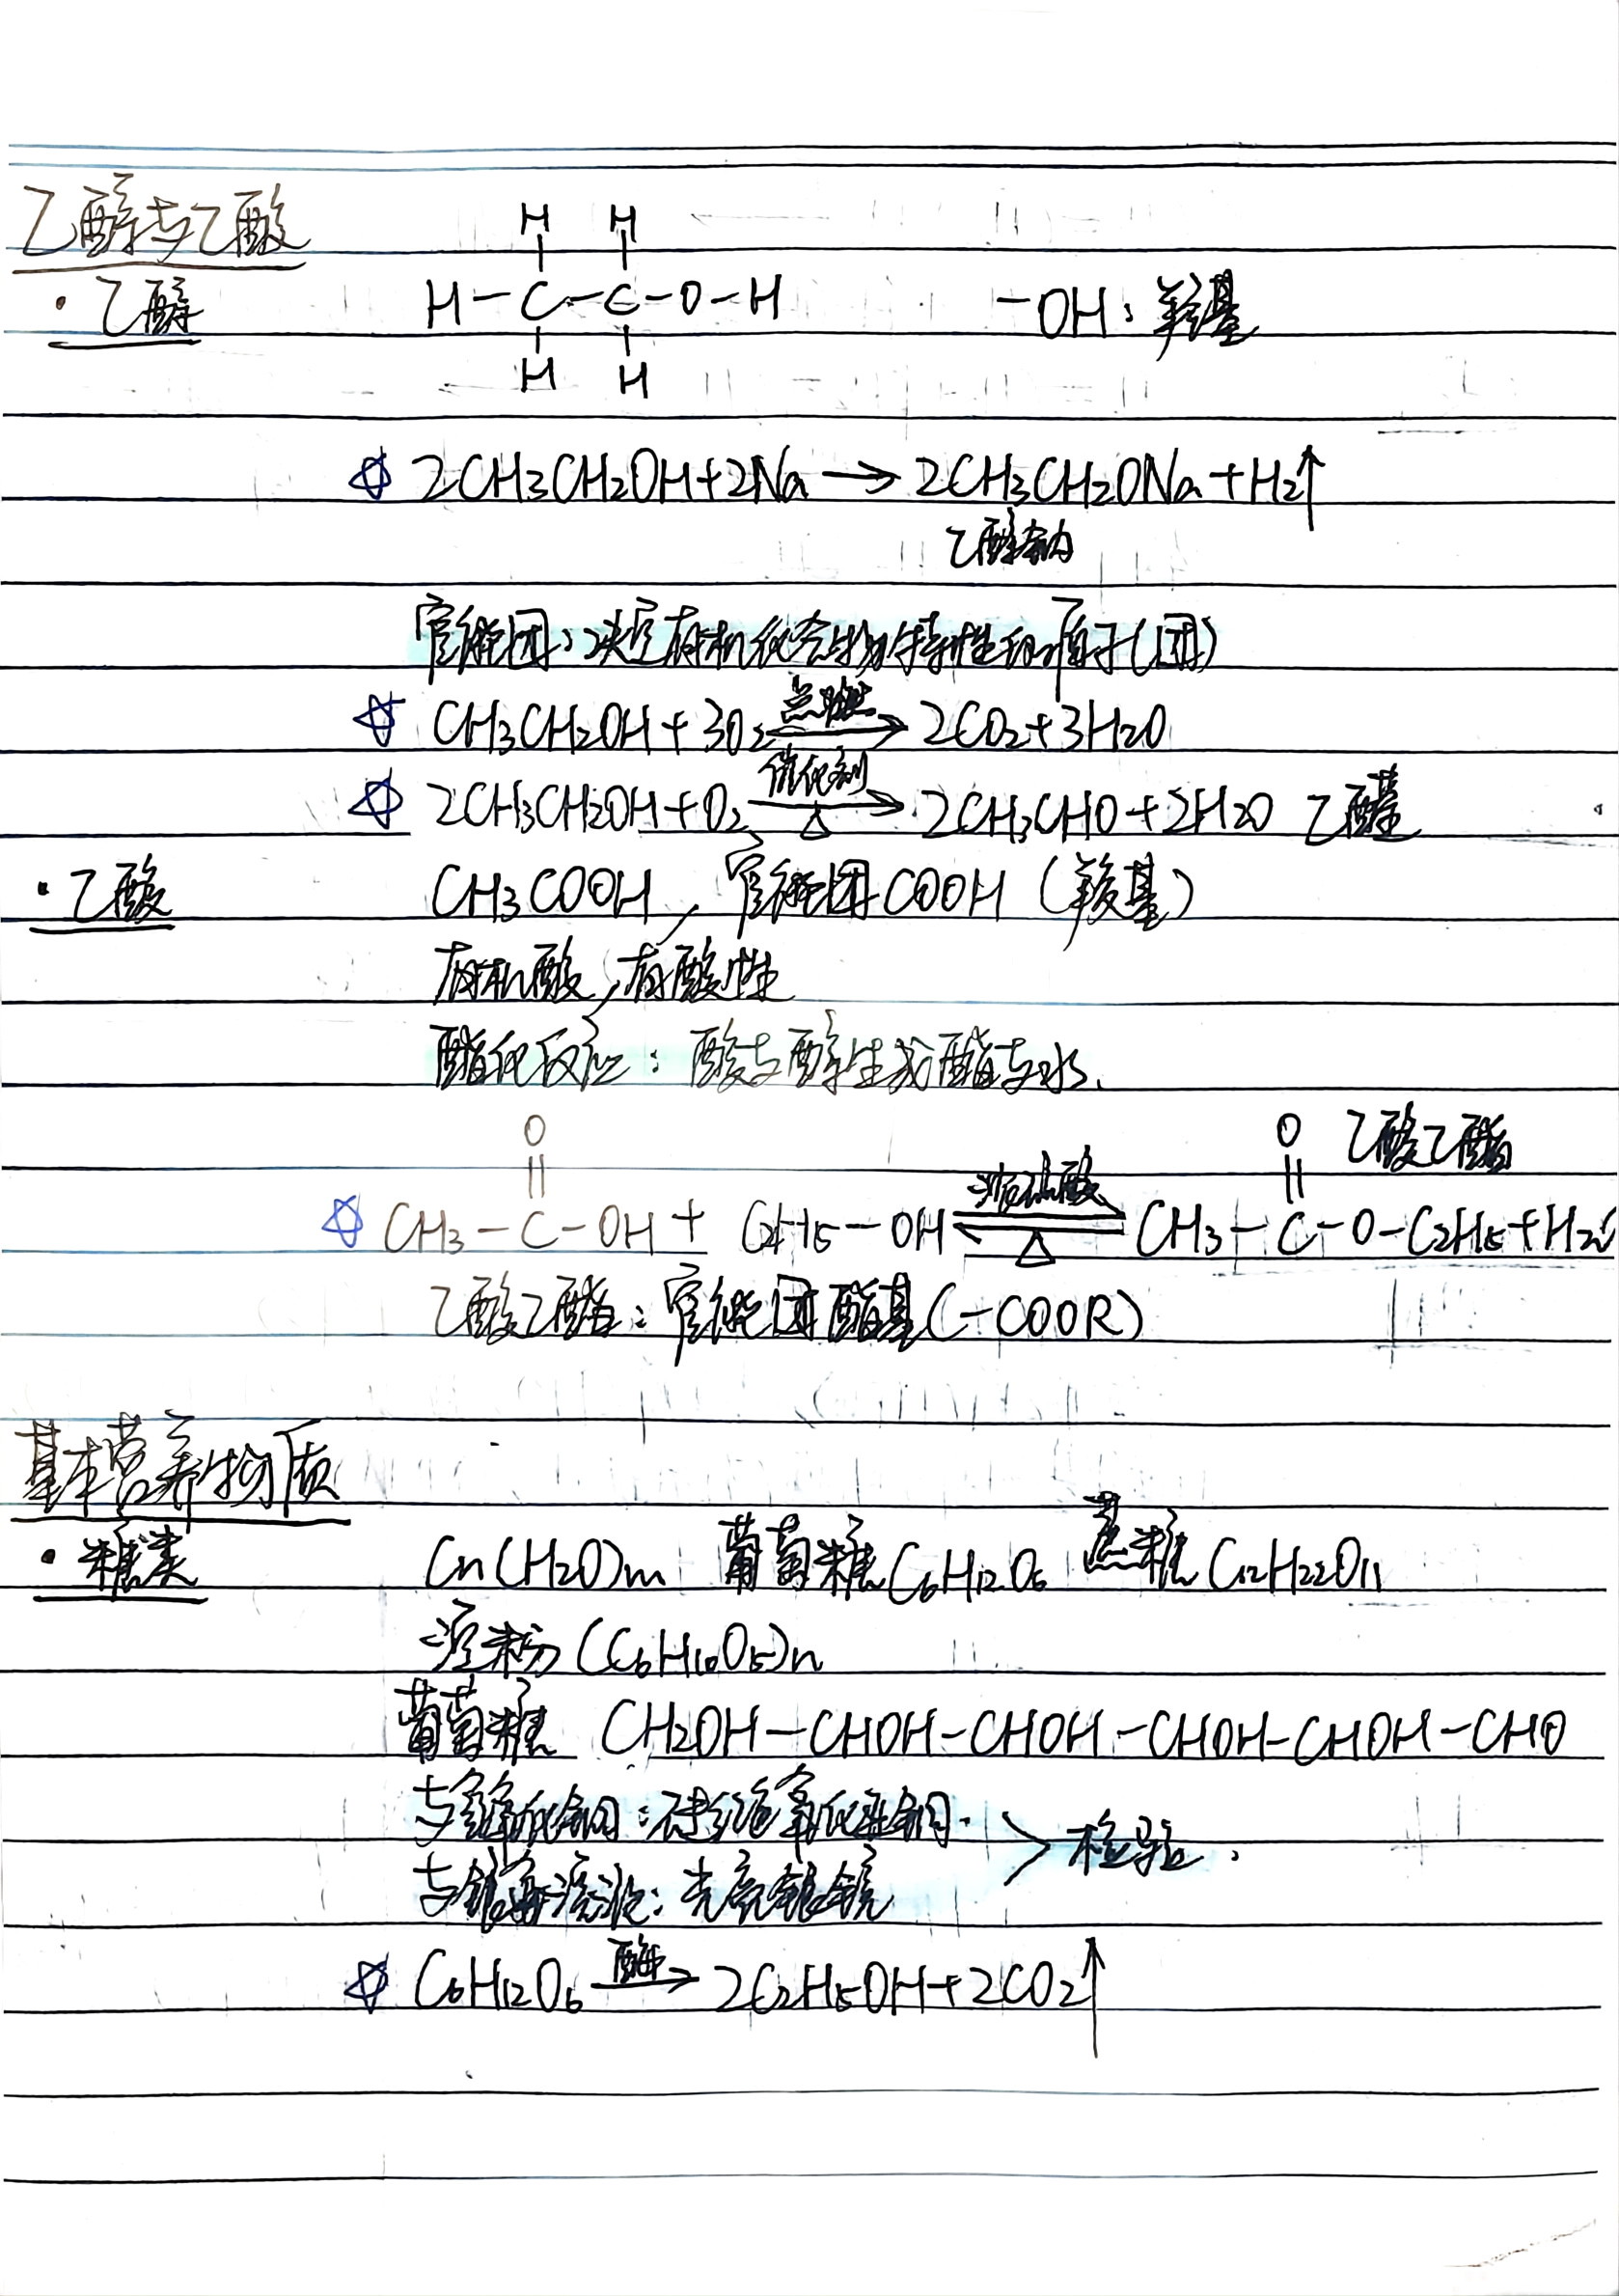 乙醇与乙酸
H H
· 乙醇 H-C-C-O-H -OH: 羟基
H H
☆ 2CH3CH2OH+2Na → 2CH3CH2ONa+H2↑
乙醇钠
官能团:决定有机化合物特性的原子(团)
☆ CH3CH2OH+3O2 点燃→ 2CO2+3H2O
☆ 2CH3CH2OH+O2 催化剂→△ 2CH3CHO+2H2O 乙醛
· 乙酸 CH3COOH, 官能团COOH (羧基)
有机酸,有酸性
酯化反应: 酸与醇生成酯与水.
O O 乙酸乙酯
|| 浓硫酸 ||
☆ CH3-C-OH+ C2H5-OH ⇌△ CH3-C-O-C2H5+H2O
乙酸乙酯: 官能团 酯基(-COOR)
基本营养物质
· 糖类 Cn(H2O)m 葡萄糖C6H12O6 蔗糖C12H22O11
淀粉(C6H10O5)n
葡萄糖 CH2OH-CHOH-CHOH-CHOH-CHOH-CHO
与氧化铜:砖红色氧化亚铜. > 检验.
与银氨溶液: 光亮银镜
☆ C6H12O6 酶→ 2C2H5OH+2CO2↑